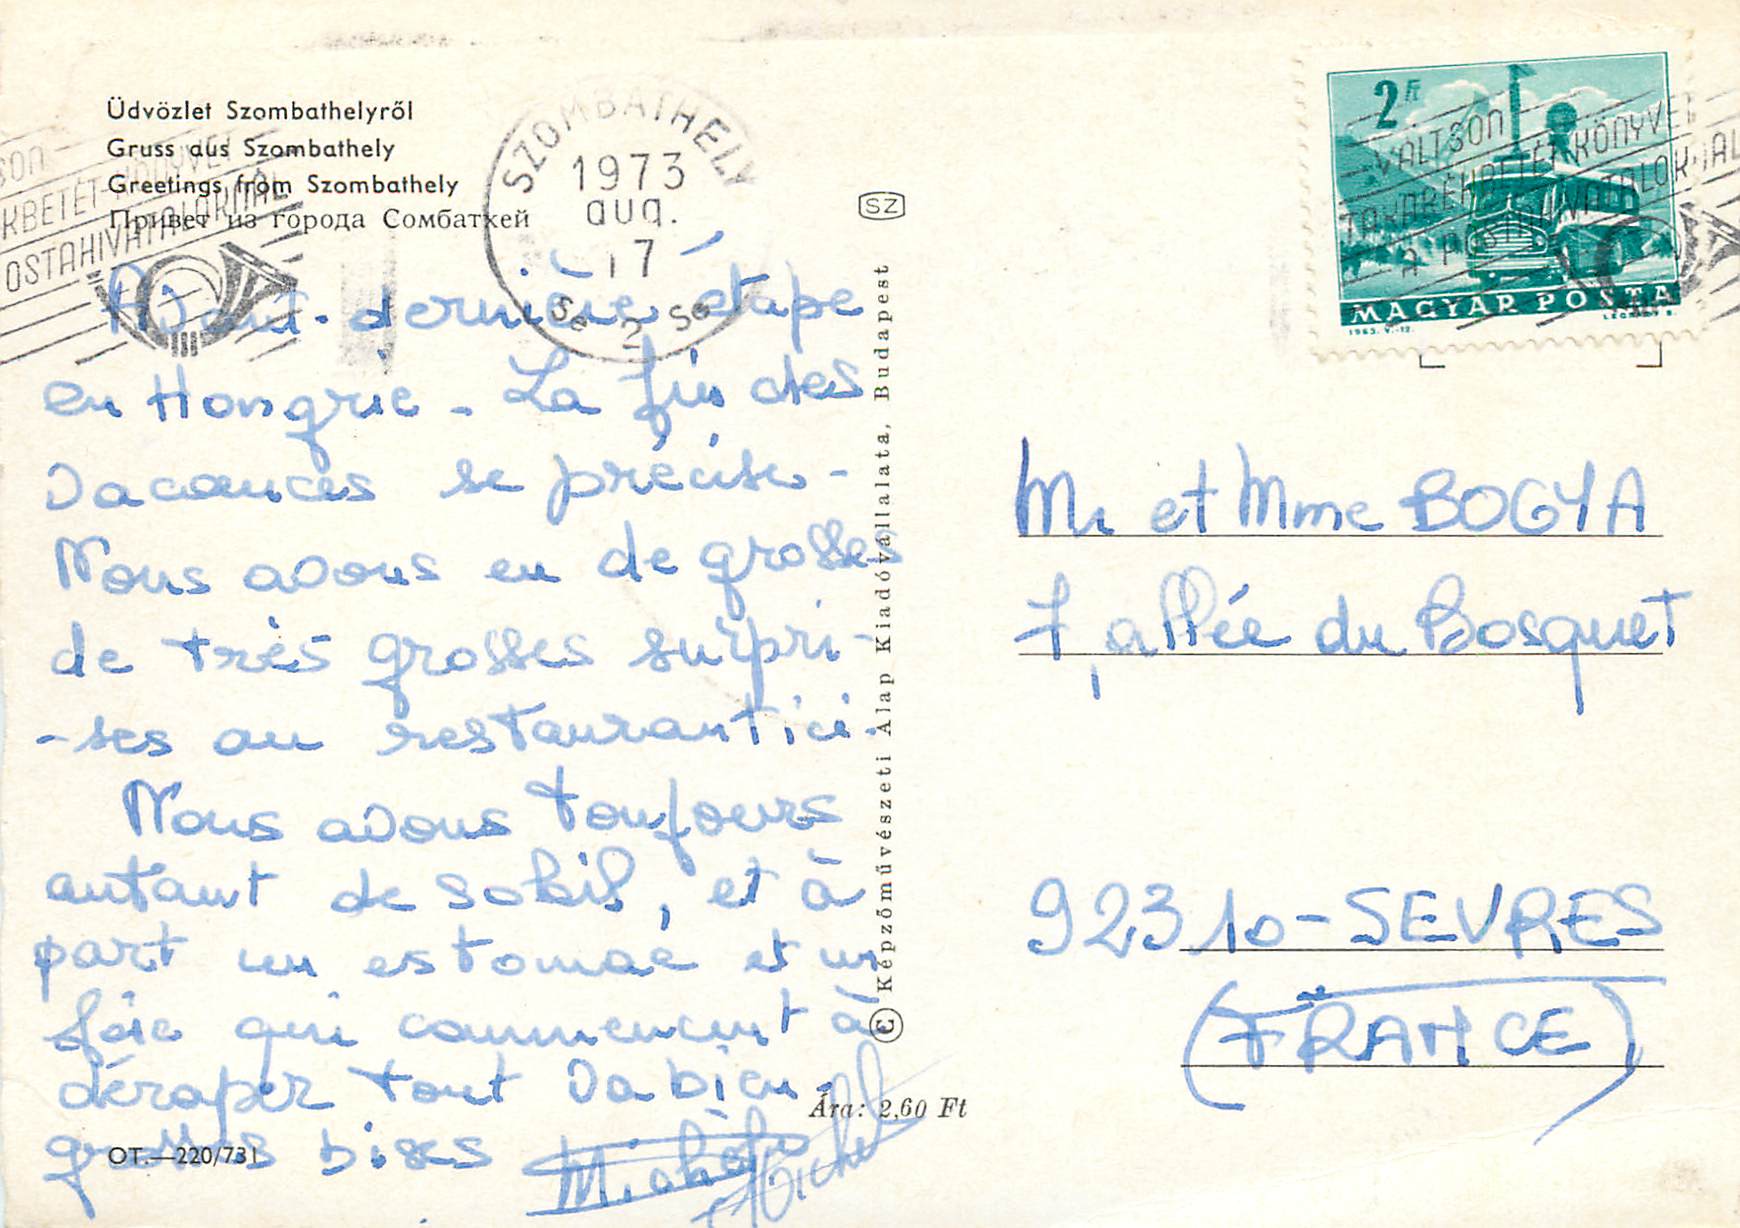 Üdvözlet Szombathelyről
Gruss aus Szombathely
Greetings from Szombathely
Привет из города Сомбатхей
SZOMBATHELY
1973
aug.
17
SZ
2 Ft
VÁLTSON
TAKARÉKBETÉT-KÖNYVET
A POSTAHIVATALOKNÁL
MAGYAR POSTA
1963. V.-12.
LÉGRÁDY S.
Avant-dernière étape
en Hongrie - La fin des
vacances se précise -
Nous avons eu de grosses
de très grosses surpri-
-ses au restaurant ici.
Nous avons toujours
autant de soleil, et à
part un estomac et un
foie qui commencent à
déraper tout va bien.
grosses bises Michèle
Michel
© Képzőművészeti Alap Kiadóvállalata, Budapest
Ára: 2,60 Ft
OT.—220/731
Mr et Mme BOGYA
7, allée du Bosquet
92310 - SEVRES
(FRANCE)